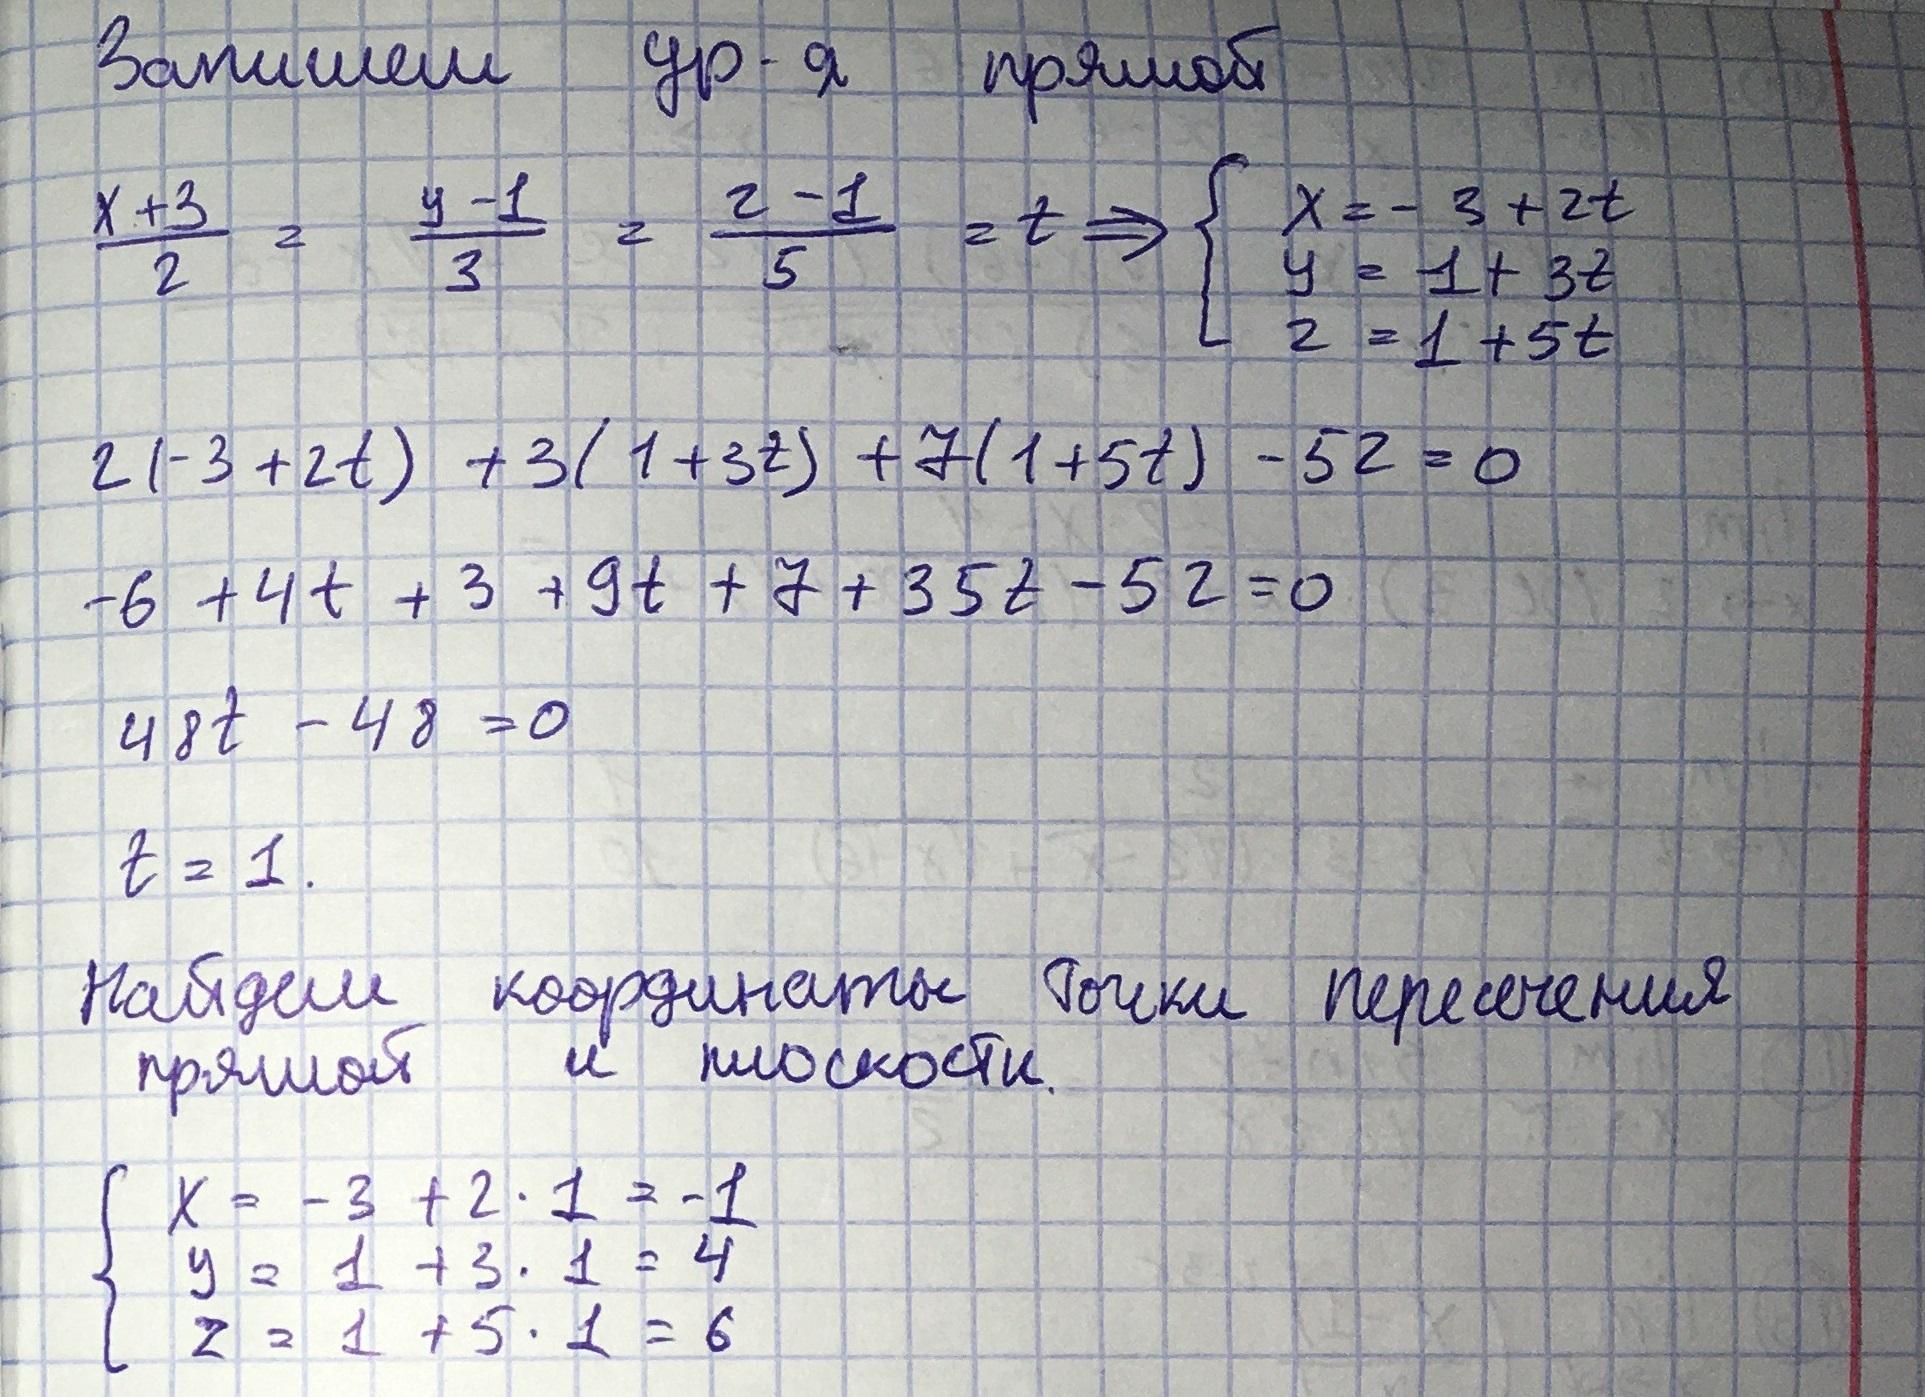 Запишем ур-я прямой
(x+3)/2 = (y-1)/3 = (z-1)/5 = t ⇒ { x = -3 + 2t
y = 1 + 3t
z = 1 + 5t
2(-3+2t) + 3(1+3t) + 7(1+5t) - 52 = 0
-6 + 4t + 3 + 9t + 7 + 35t - 52 = 0
48t - 48 = 0
t = 1.
Найдем координаты точки пересечения
прямой и плоскости.
{ x = -3 + 2·1 = -1
y = 1 + 3·1 = 4
z = 1 + 5·1 = 6